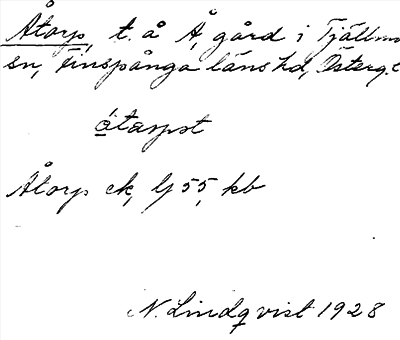 Åtorp, t. å Å, gård i Tjällmo
sn, Finspånga läns hd, Österg. l
åtarpst
Åtorp ek, Gj 55, kb
N. Lindqvist 1928